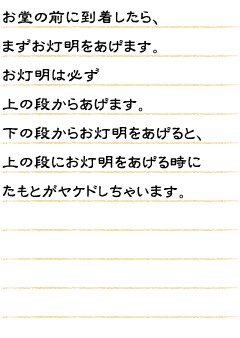 お堂の前に到着したら、
まずお灯明をあげます。
お灯明は必ず
上の段からあげます。
下の段からお灯明をあげると、
上の段にお灯明をあげる時に
たもとがヤケドしちゃいます。